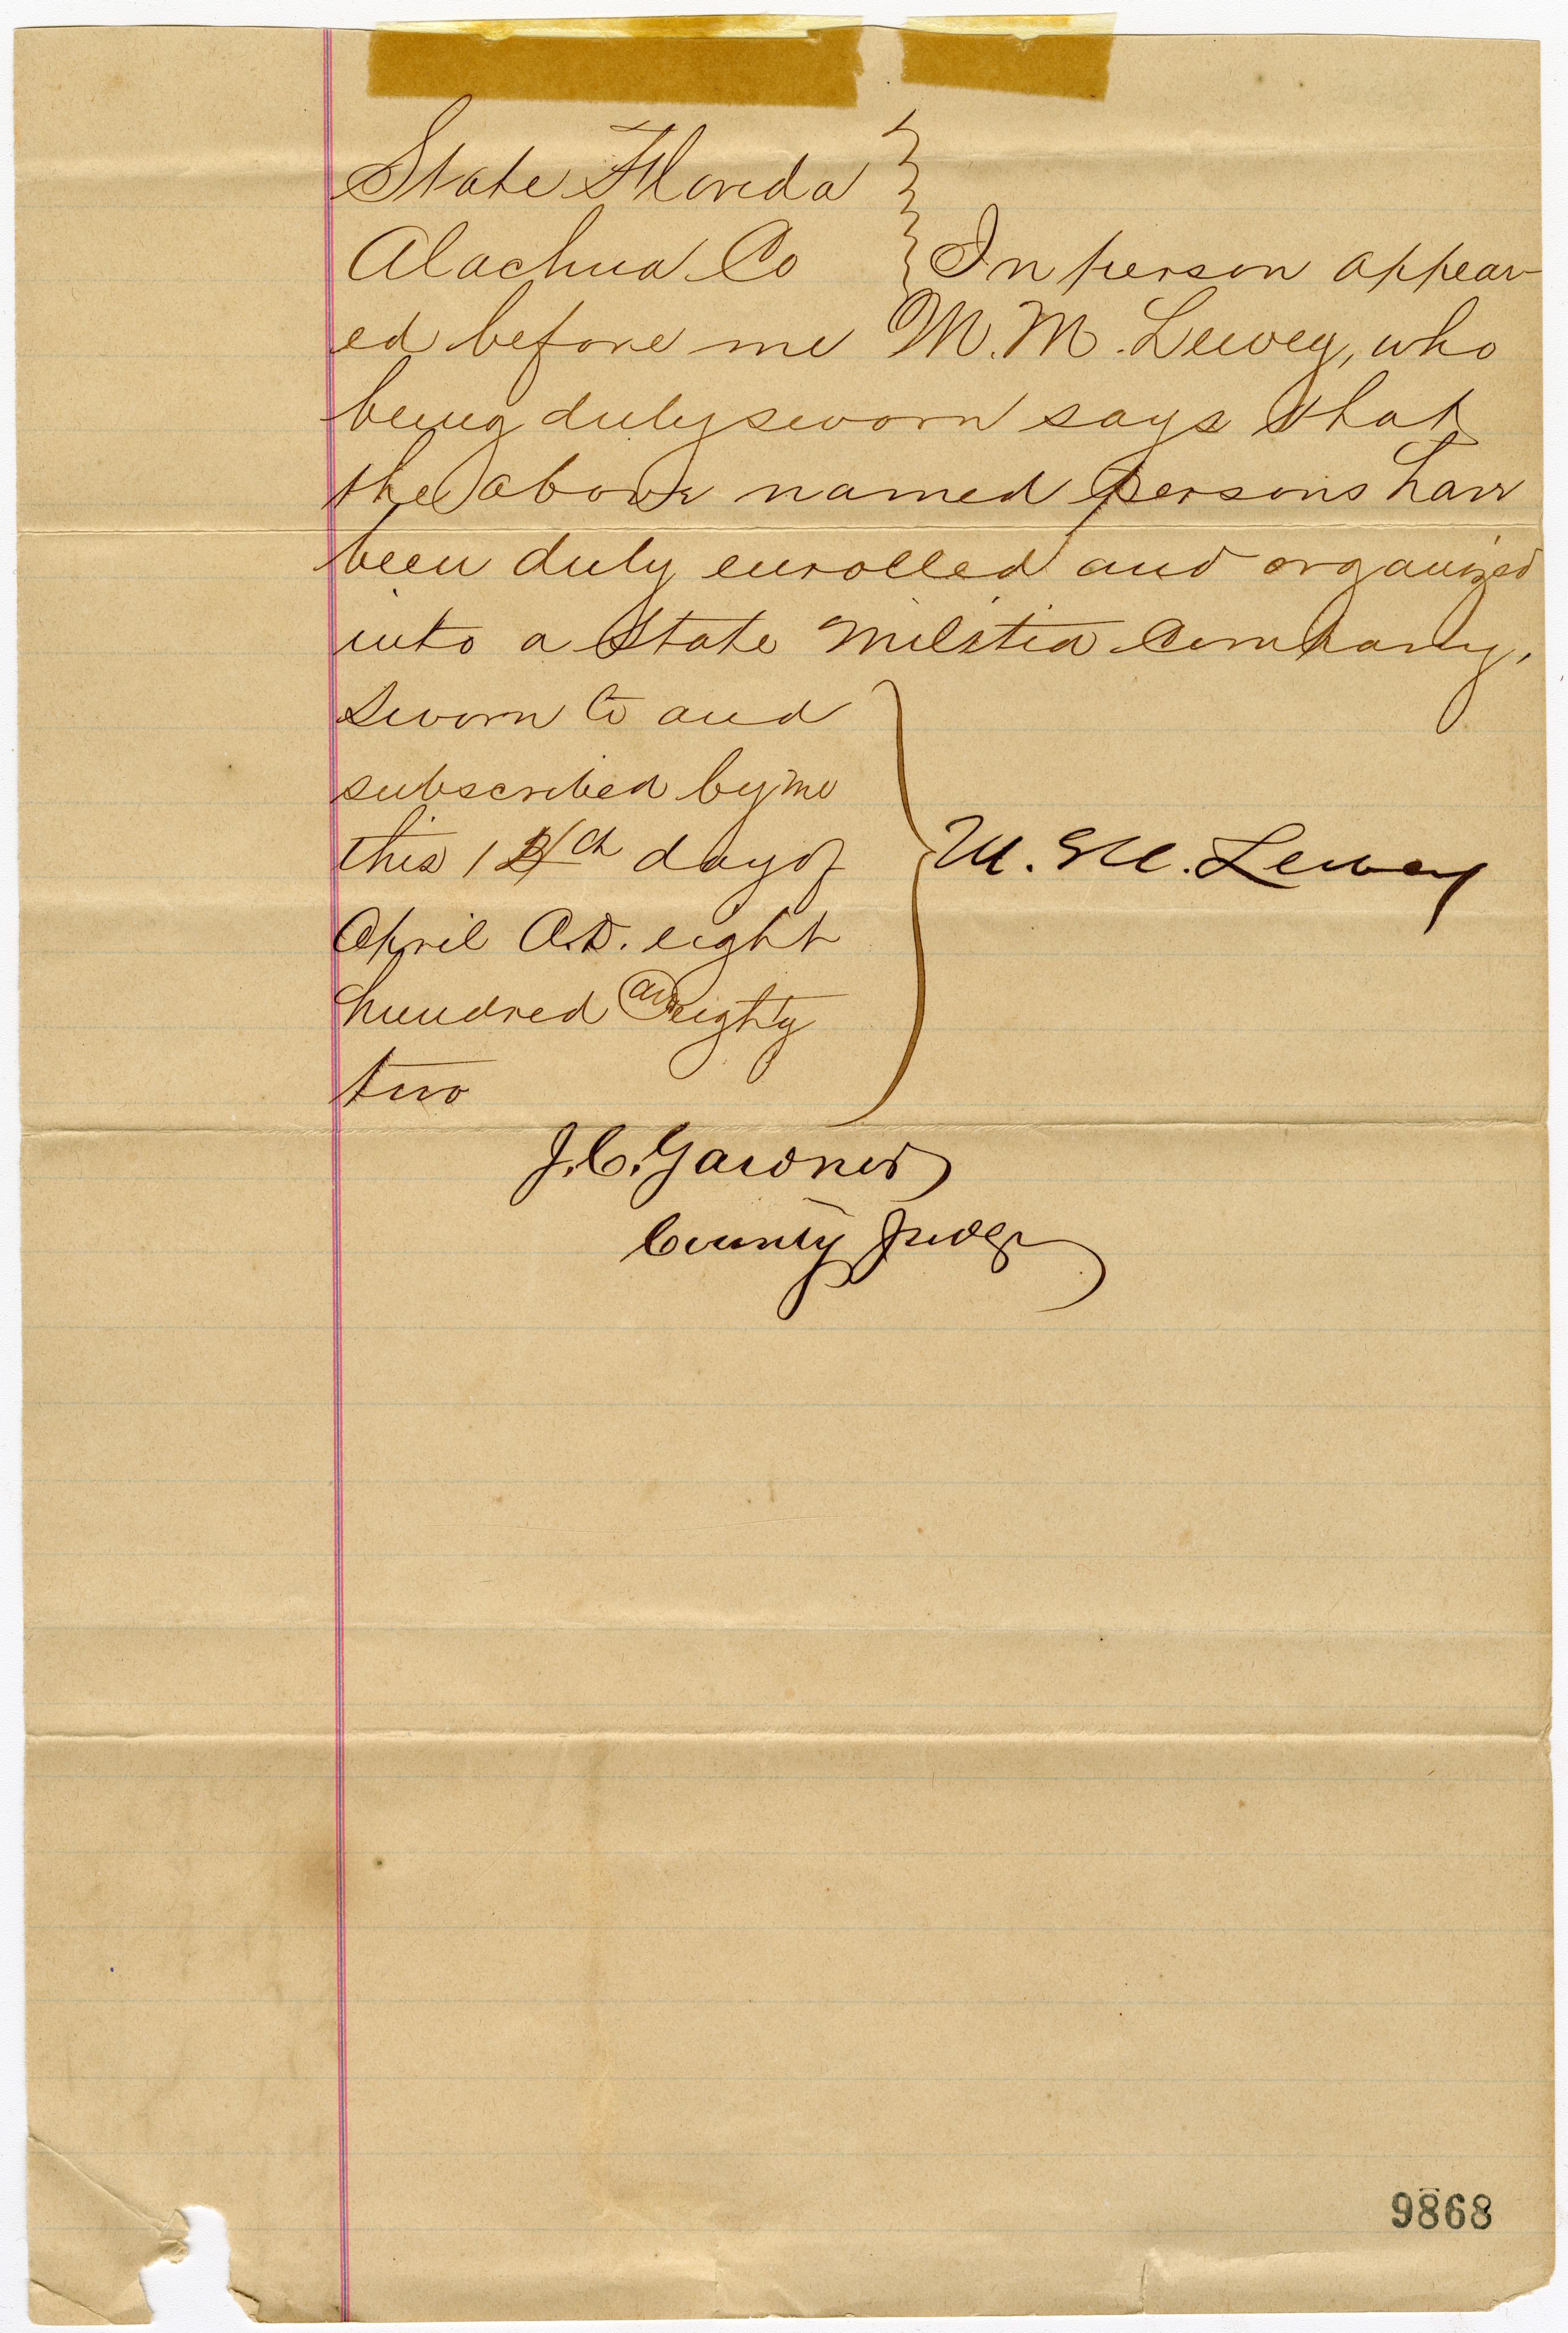 State Florida
Alachua Co } In person appear-
ed before me M. M. Lewey, who
being duly sworn says that
the above named persons have
been duly enrolled and organized
into a State Militia Company.
Sworn to and
subscribed by me
this 14th day of
April A.D. eight
hundred and eighty
two
M. M. Lewey
J. C. Gardner
County Judge
9868